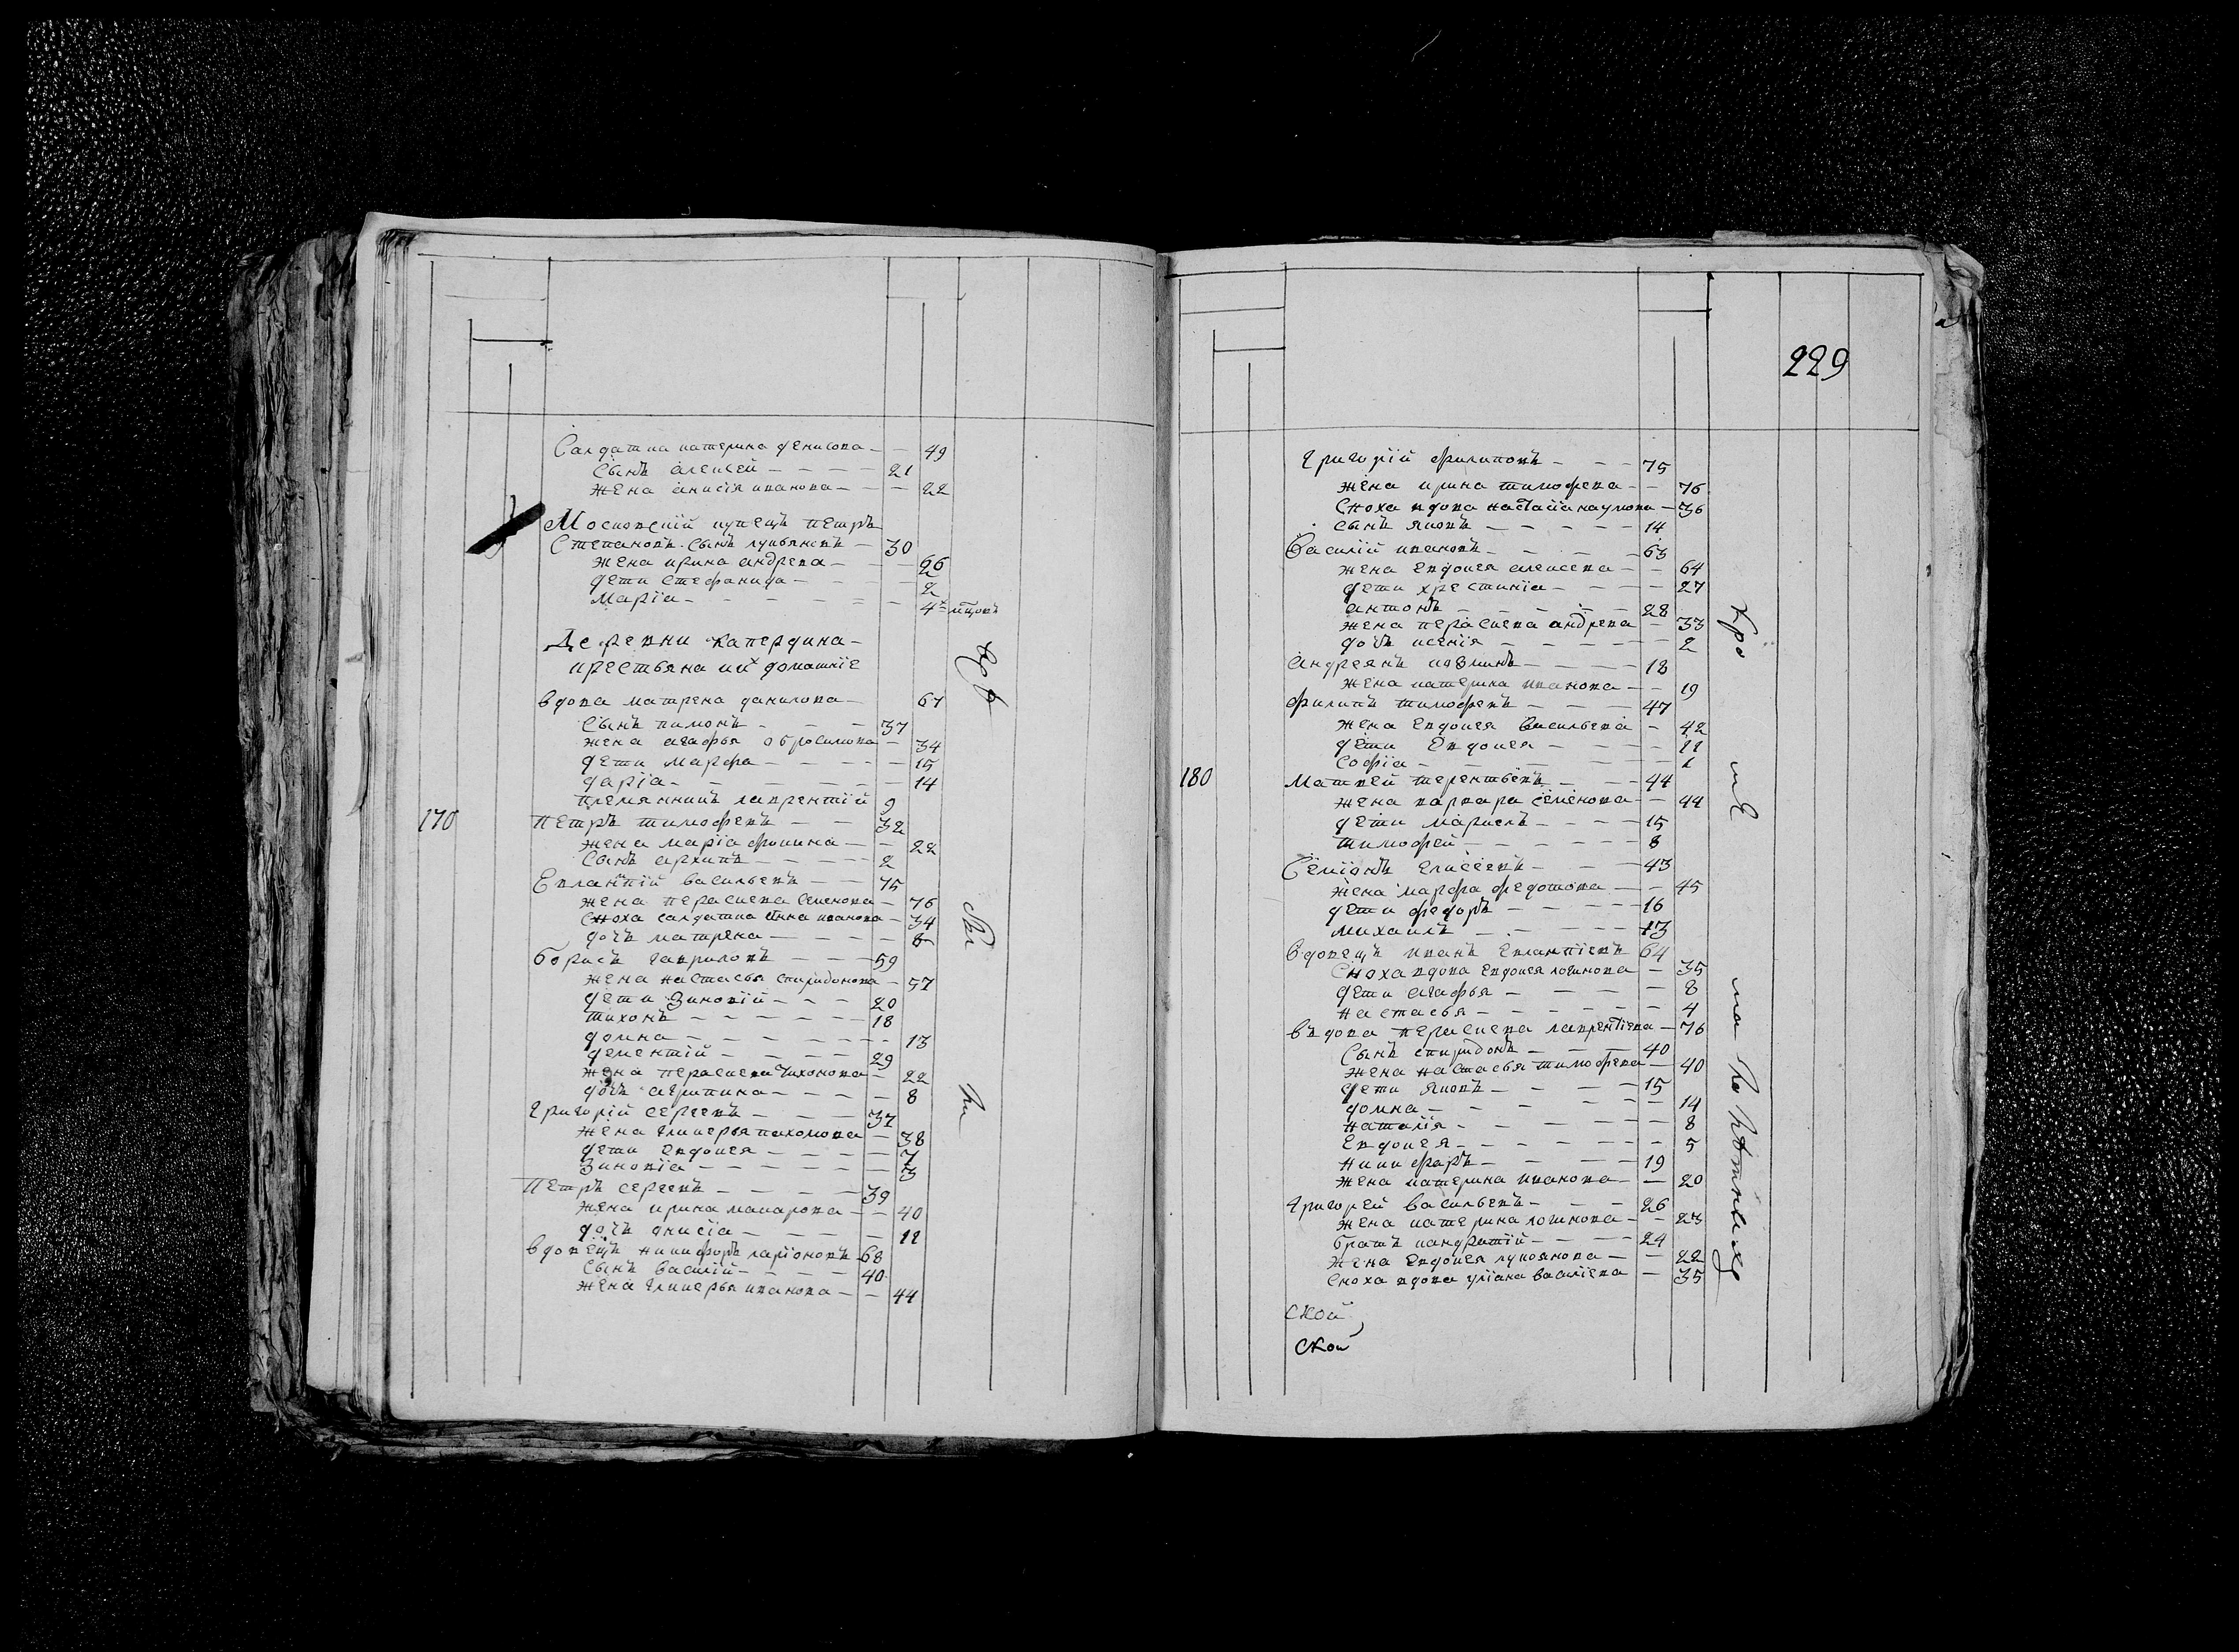 Салдатка катерина денисова — — 49
Сынъ алексей — — — — 21
Жена анисія иванова — — — 22
Московскій купецъ петръ
Степановъ сынъ лукьяновъ — 30
жена ирина андрева — — — 26
дети стефанида — — — 2
Маріа — — — — — — 4х мцовъ
Деревни каверзина
крестьяна и их домашніе
вдова матрена данилова — 67
Сынъ пимонъ — — — 37
жена агафья абросимова — 34
дети марфа — — — — 15
даріа — — — — — — 14
племянникъ лаврентій 9
170 петръ тимофевъ — — 32
жена маріа фокина — — 22
Сынъ архипъ — — — — 2
Евлампій васильевъ — — 75
жена перасковa семенова — 76
Сноха салдатка анна иванова — 34
дочь матрена — — — — 8
борисъ гавриловъ — — — 59
жена настасья спиридонова — 57
дети зиновій — — — 20
тихонъ — — — — — 18
домна — — — — — — 13
дементій — — — — 29
жена перасковa тихонова — 22
дочь агрипина — — — — 8
григорій сергевъ — — — 37
жена гликерья пахомова — 38
дети евдокея — — — — 7
зиновіа — — — — — — 3
петръ сергевъ — — — — 39
жена ирина макарова — — 40
дочь анисіа — — — — — 11
вдовецъ никифоръ ларіоновъ 68
сынъ василій — — — — 40
жена гликерья иванова — — 44
229
григорій филиповъ — — — 75
жена ирина тимофева — — 76
Сноха вдова настасіа наумова — 36
сынъ яковъ — — — — — 14
Василій ивановъ — — — — 63
жена евдокея алексева — — 64
дети хрестиніа — — — — 27
антонъ — — — — — 28
жена перасковa андрева — 33
дочь ксенія — — — — — 2
андреянъ козминъ — — — — 18
жена катерина иванова — — 19
филипъ тимофевъ — — — 47
жена евдокея васильева — 42
дети евдокея — — — — 11
Софіа — — — — — — 1
180 Матвей терентьевъ — — — 44
жена варвара семенова — — 44
дети маркелъ — — — — 15
тимофей — — — — — — 8
Семіонъ елисеевъ — — — 43
жена марфа федотова — — 45
дети федоръ — — — — 16
михаилъ — — — — — 13
вдовецъ иванъ евлампіевъ 64
Сноха вдова евдокея логинова — 35
дети агафья — — — — — 8
настасья — — — — — — 4
въдова перасковa лаврентіева — 76
Сынъ спиридонъ — — — 40
жена настасья тимофева — 40
дети яковъ — — — — 15
домна — — — — — — 14
наталія — — — — — — 8
евдокея — — — — — — 5
никифаръ — — — — 19
жена катерина иванова — — 20
григорей васильевъ — — — 26
жена катерина логинова — — 23
братъ кандратій — — — 24
жена евдокея лукоянова — — 22
сноха вдова уліана василіева — 35
ской
ской